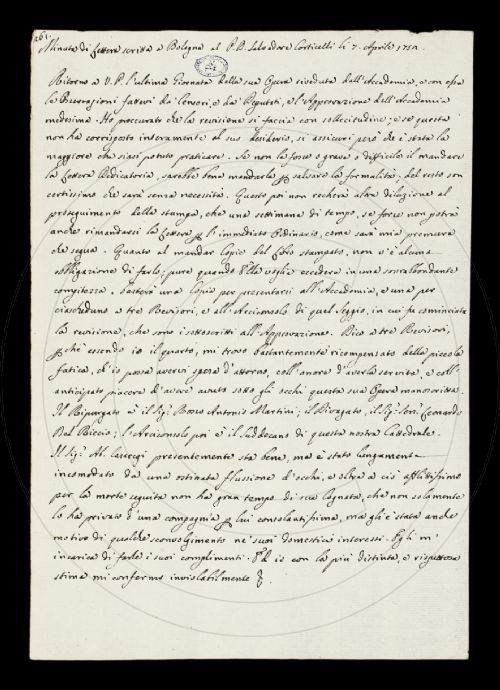 261.
Minuta di Lettera scritta a Bologna al P. D. Salvadore Corticelli li 7. Aprile 1751.
Ritorno a V. P. l'ultima Giornata della sua Opera riveduta dall'Accademia, e con essa
le osservazioni fattevi da' Censori, e da' Deputati, e l'Approvazione dell'Accademia
medesima. Ho procurato che la revisione si faccia con sollecitudine; e se questa
non ha corrisposto interamente al suo desiderio, si assicuri però che è stata la
maggiore che siasi potuto praticare. Se non la fosse o grave o difficile il mandare
la Lettera Dedicatoria, sarebbe bene mandarla p salvare la formalità; del resto son
certissimo che sarà senza necessità. Questo poi non recherà altra dilazione al
proseguimento della stampa, che una settimana di tempo, se forse non potrà
anche rimandarsi la Lettera p l'immediato Ordinario, come sarà mia premura
che segua. Quanto al mandar Copie del Libro stampato, non v'è alcuna
obbligazione di farlo; pure quando Ella voglia eccedere in una soprabbondante
compitezza, basterà una Copia per presentarsi all'Accademia, e una per
ciascheduno a tre Revisori, e all'Arciconsolo di quel Seggio, in cui fu cominciata
la revisione, che sono i sottoscritti all'Approvazione. Dico a tre Revisori,
p che essendo io il quarto, mi trovo bastantemente ricompensato della piccola
fatica, ch'io possa avervi spesa d'attorno, coll'onore d'averla servita, e coll'
anticipato piacere d'avere avuto sotto gli occhi questa sua Opera manoscritta.
Il Ripurgato è il Sig. Rosso Antonio Martini; il Divagato, il Sig. Leonardo
Del Riccio; l'Arciconsolo poi è il Suddecano di questa nostra Cattedrale.
Il Sig. Ab. presentemente sta bene, ma è stato lungamente
incomodato da una ostinata flussione d'occhi, e oltre a ciò afflittissimo
per la morte seguita non ha gran tempo di sua Cognata, che non solamente
lo ha privato d'una compagnia p lui consolantissima, ma gli è stata anche
motivo di qualche sconvolgimento ne' suoi domestici interessi. Egli m'
incarica di farle i suoi complimenti. Ed io con la più distinta, e rispettosa
stima mi confermo inviolabilmente